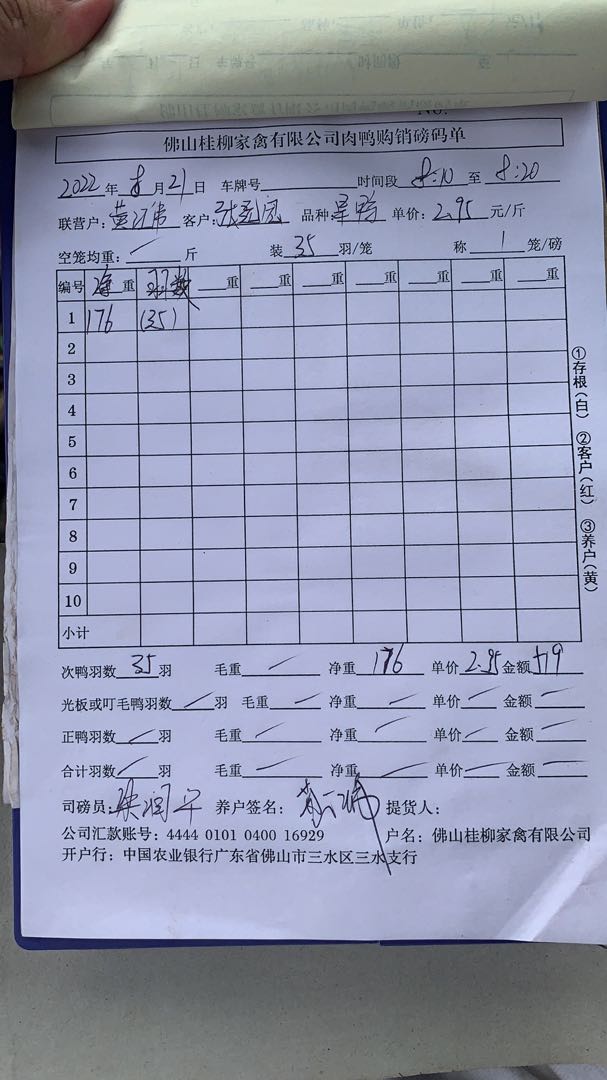 佛山桂柳家禽有限公司肉鸭购销磅码单
2022年8月21日 车牌号 时间段 8:10 至 8:20
联营户: 客户: 品种: 鸭 单价: 2.95 元/斤
空笼均重: 斤 装 35 羽/笼 称 1 笼/磅
编号 净重 羽数 重 重 重 重 重 重 重
1 176 (35)
2
3
4
5
6
7
8
9
10
小计
次鸭羽数 35 羽 毛重 净重 176 单价 2.95 金额 519
光板或叮毛鸭羽数 羽 毛重 净重 单价 金额
正鸭羽数 羽 毛重 净重 单价 金额
合计羽数 羽 毛重 净重 单价 金额
司磅员: 养户签名: 提货人:
公司汇款账号: 4444 0101 0400 16929 户名: 佛山桂柳家禽有限公司
开户行: 中国农业银行广东省佛山市三水区三水支行
①存根(白) ②客户(红) ③养户(黄)